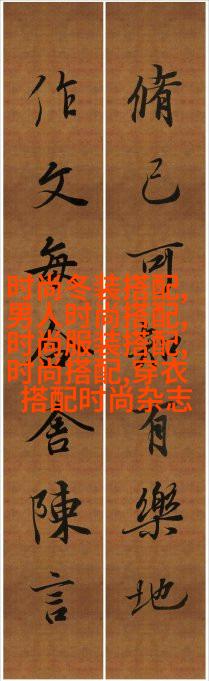 脩己可有樂地
作文舍陳言
时尚冬装搭配,
男人时尚搭配,
时尚服装搭配,
时尚搭配,穿衣
搭配时尚杂志